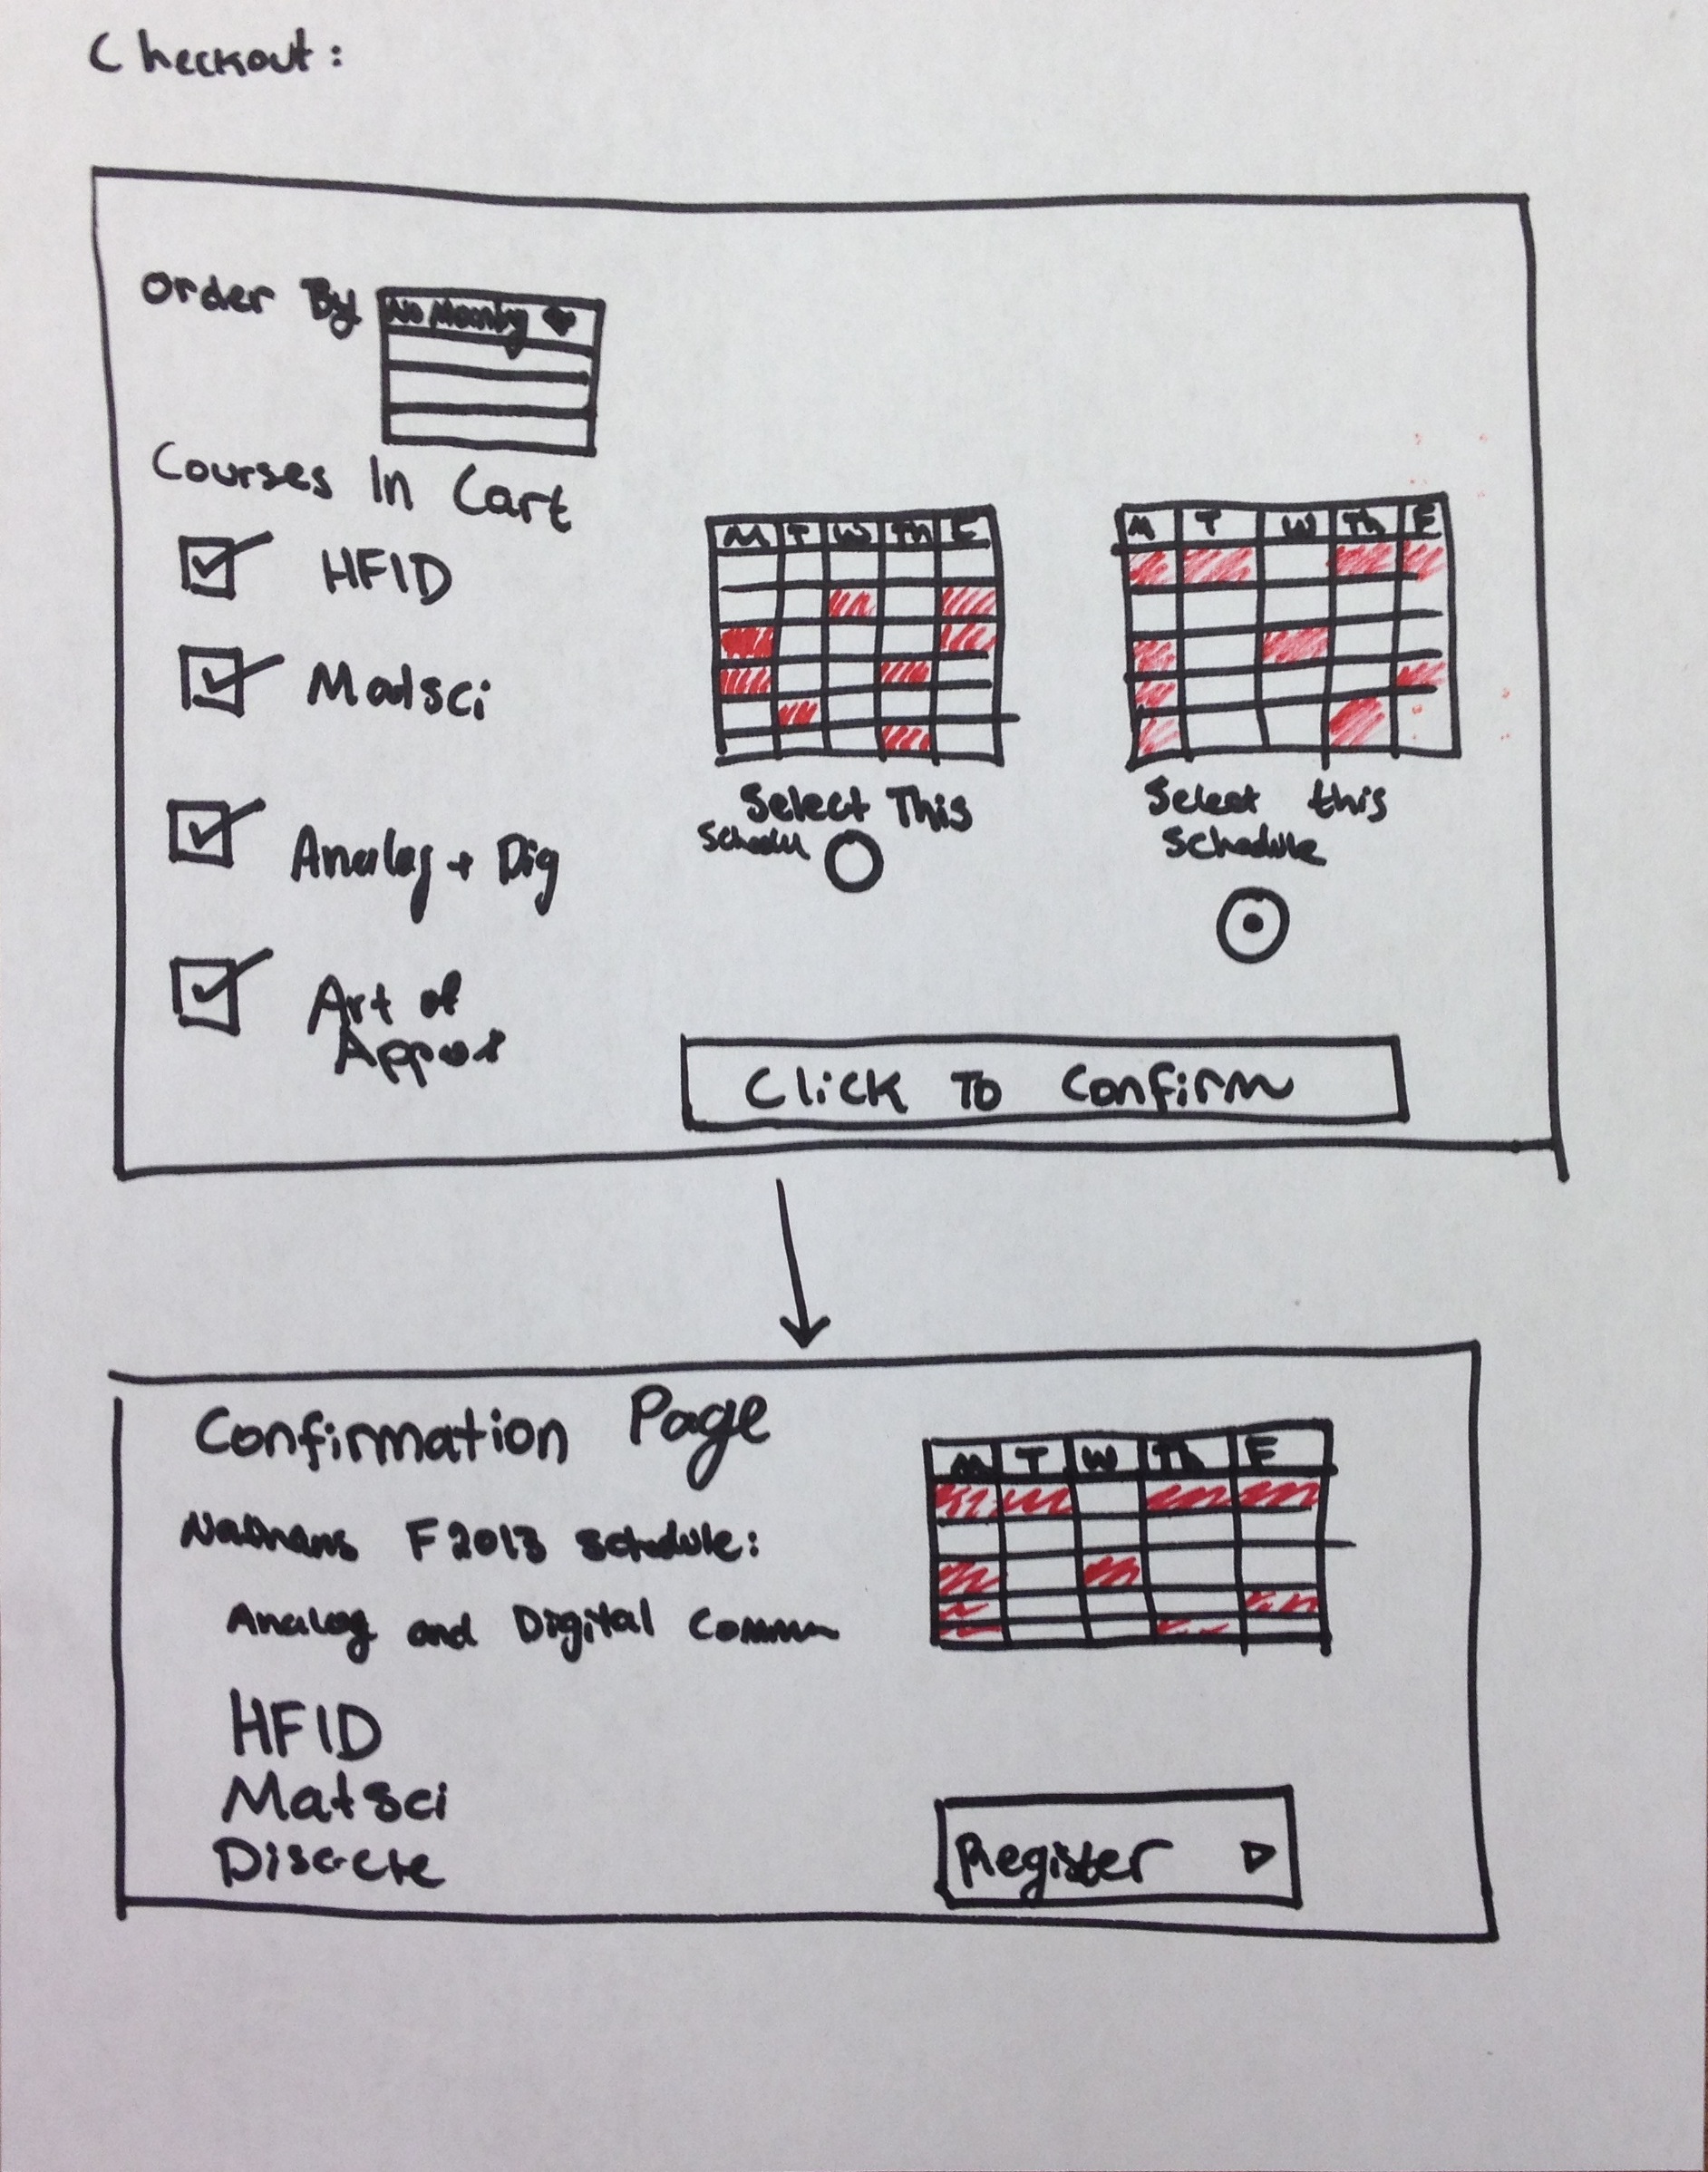 Checkout:
Order By No Morning
Courses In Cart
HFID
Matsci
Analog + Dig
Art of
Approx
M T W Th F
Select This
Schedul
M T W Th F
Select this
Schedule
Click To Confirm
Confirmation Page
Nathans F2013 Schedule:
Analog and Digital Comm
HFID
Matsci
Discrete
M T W Th F
Register